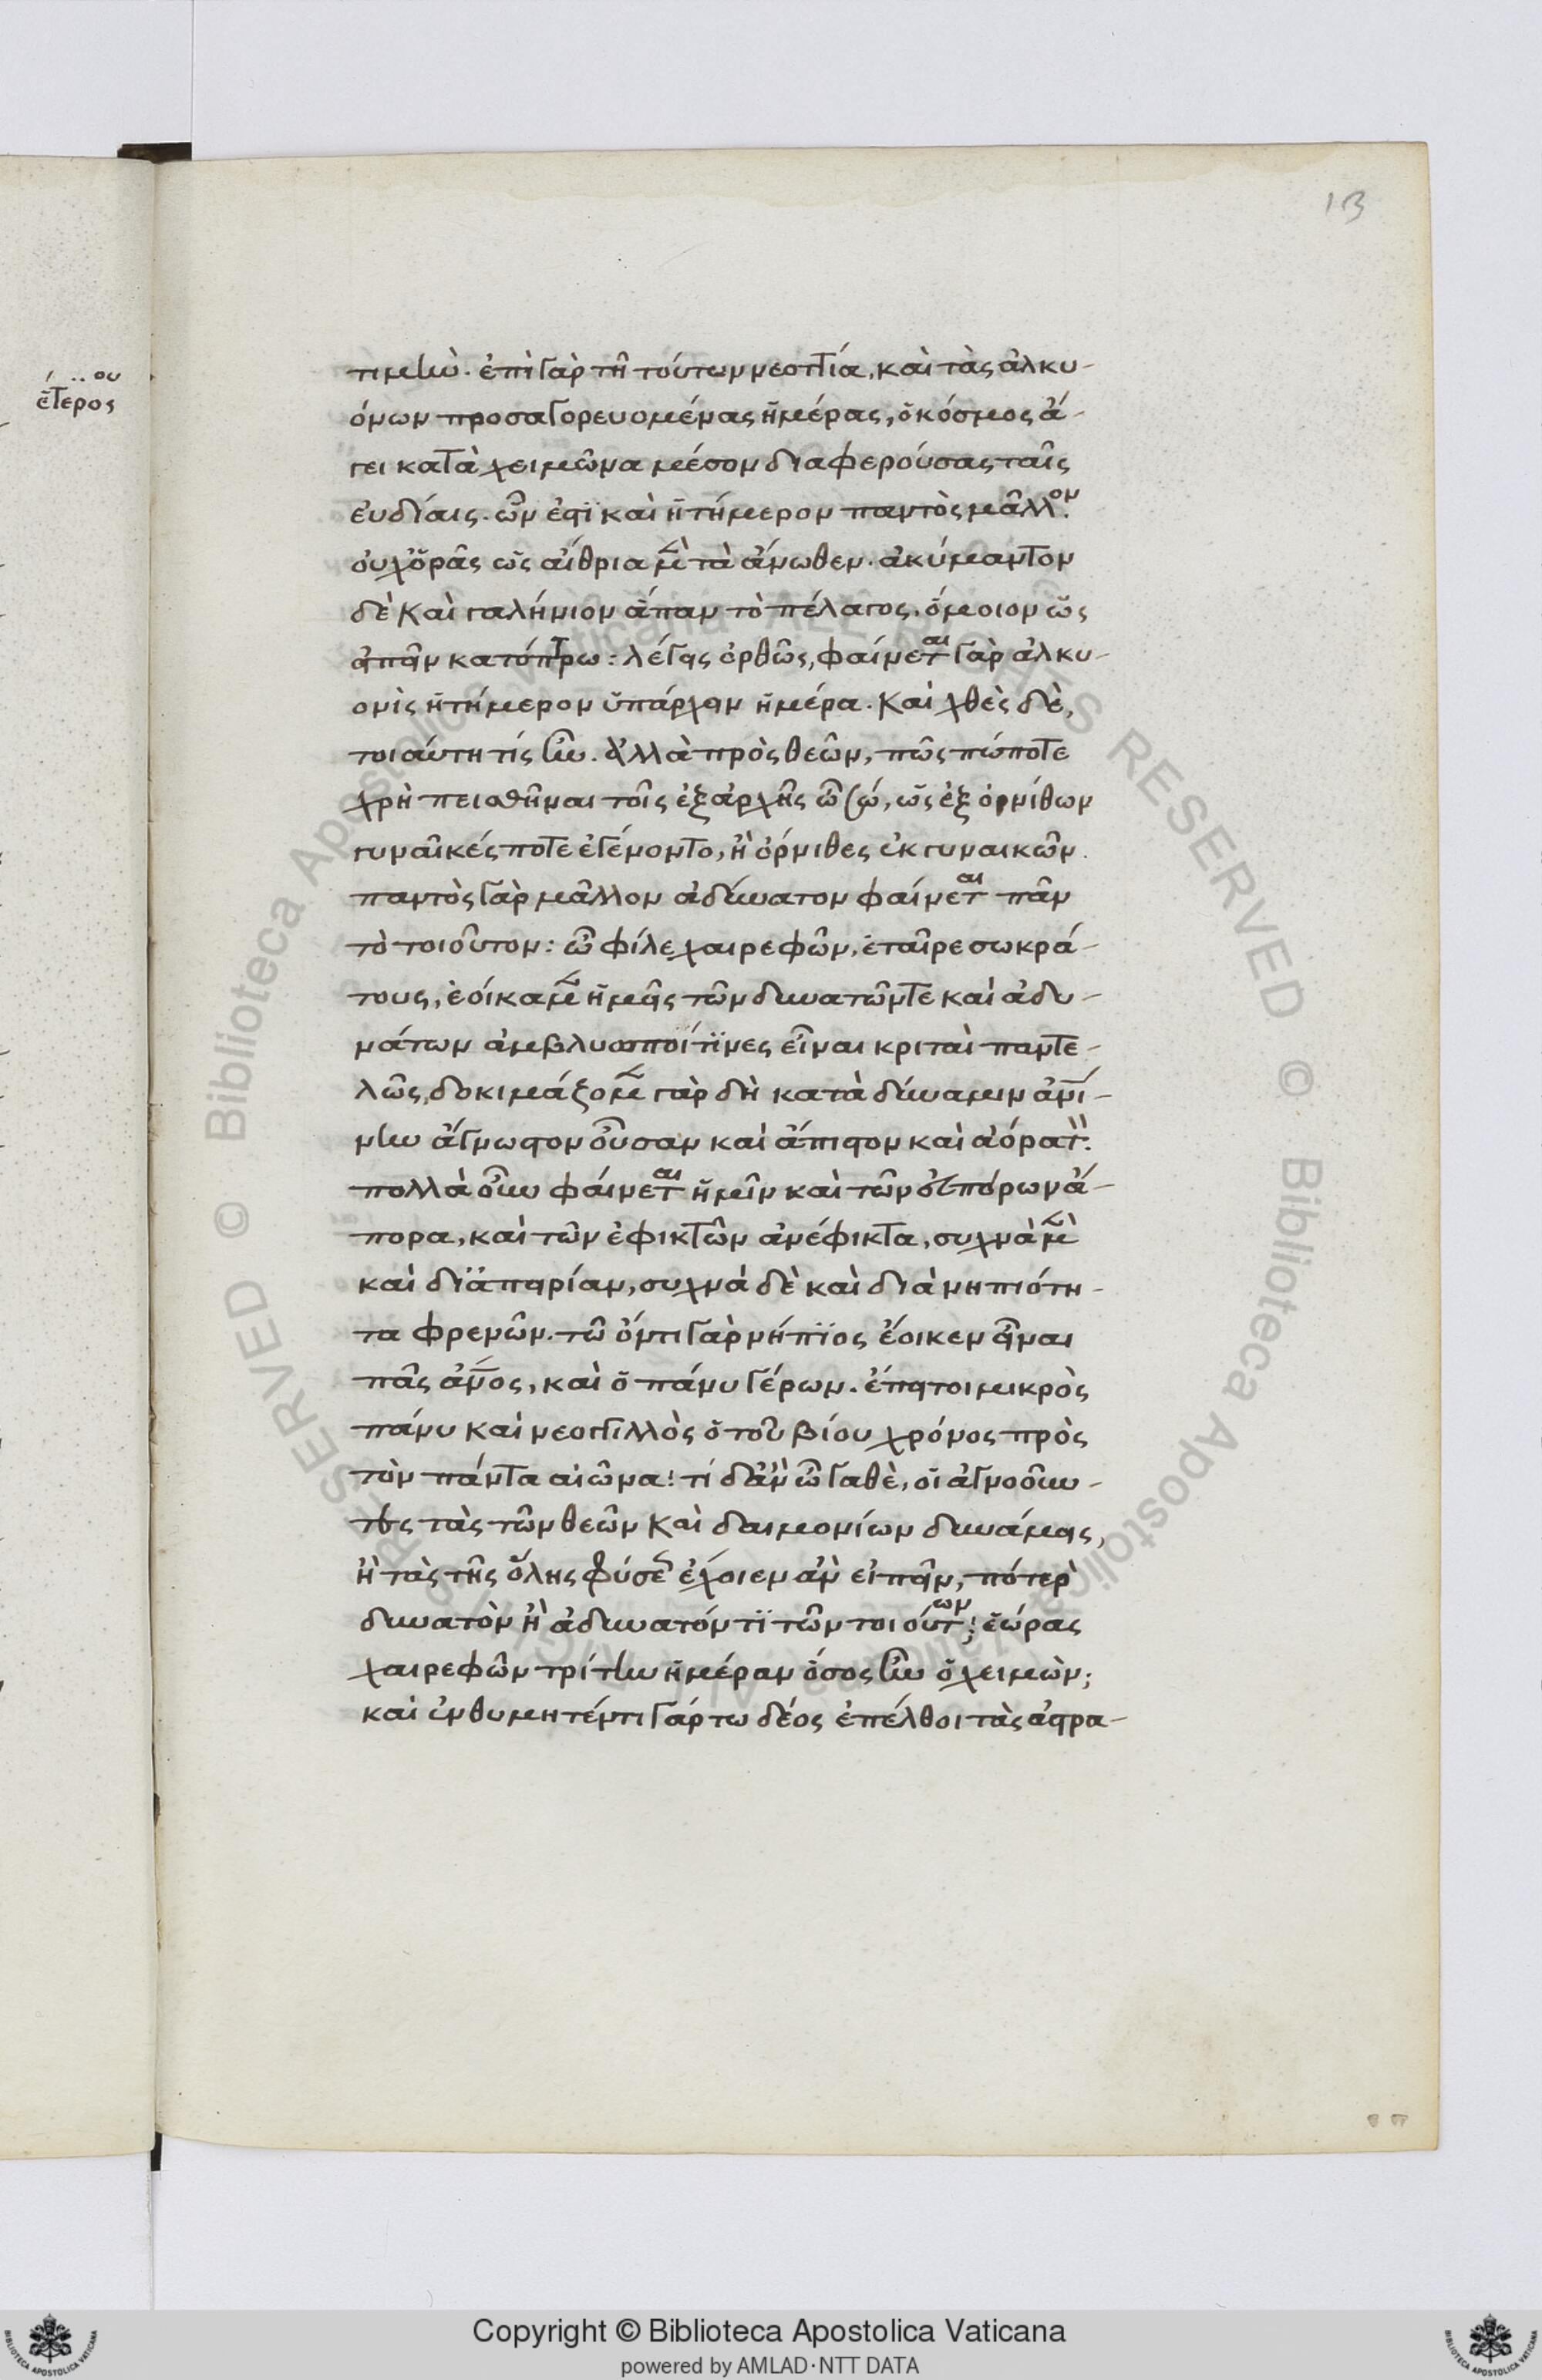 13
έτερος
τιμὴν. ἐπὶ γὰρ τῆ τούτων νεοττία, καὶ τὰς ἀλκυ-
όνων προσαγορευομένας ἡμέρας, ὁ κόσμος ἄ-
γει κατὰ χειμῶνα μέσον διαφερούσας ταῖς
ἐυδίαις. ὧν ἐστὶ καὶ ἡ τήμερον παντὸς μᾶλλον.
οὐχ ὁρᾶς ὡς αἴθρια μὲν τὰ ἄνωθεν. ἀκύμαντον
δὲ καὶ γαλήνιον ἅπαν τὸ πέλαγος. ὅμοιον ὡς
εἰπεῖν κατόπτρω: λέγεις ὀρθῶς, φαίνεται γὰρ ἀλκυ-
ονὶς ἡ τήμερον ὑπάρχειν ἡμέρα. καὶ χθὲς δὲ,
τοιάυτη τίς ἦν. ἀλλὰ πρὸς θεῶν, πῶς πώποτε
χρὴ πεισθῆναι τοῖς ἐξαρχῆς ὦ σώ, ὡς ἐξ ὀρνίθων
γυναῖκές ποτε ἐγένοντο, ἢ ὄρνιθες ἐκ γυναικῶν.
παντὸς γὰρ μᾶλλον ἀδύνατον φαίνεται πᾶν
τὸ τοιοῦτον: ὦ φίλε χαιρεφῶν, ἑταῖρε σωκρά-
τους, ἐοίκαμεν ἡμεῖς τῶν δυνατῶντε καὶ ἀδυ-
νάτων ἀμβλυωποίτϊνες εἶναι κριταὶ παντε-
λῶς, δοκιμάζομεν γὰρ δὴ κατὰ δύναμιν ἀνί-
νην ἄγνωστον οὖσαν καὶ ἄπιστον καὶ ἀόρατ.
πολλὰ οὖν φάινεται ἡμῖν καὶ τῶν εὐπόρων ἄ-
πορα, καὶ τῶν ἐφικτῶν ἀνέφικτα, συχνὰ μὲν
καὶ δϊ ἀπειρίαν, συχνὰ δὲ καὶ διὰ νηπιότη-
τα φρενῶν. τῶ ὄντι γὰρ νήπϊος ἔοικεν εἶναι
πᾶς ἄνος, καὶ ὁ πάνυ γέρων. ἐπείτοι μικρὸς
πάνυ καὶ νεογιλλὸς ὁ τοῦ βίου χρόνος πρὸς
τὸν πάντα αἰῶνα: τί δ' ἂν ὦ γαθὲ, οἱ ἀγνοοῦν-
τες τὰς τῶν θεῶν καὶ δαιμονίων δυνάμεις,
ἢ τὰς τῆς ὅλης φύσεως ἔχοιεν ἂν εἰπεῖν, πότερον
δυνατὸν ἢ ἀδυνατόν τϊ τῶν τοιούτων; ἑώρας
χαιρεφῶν τρίτην ἡμέραν ὅσος ἦν ὁ χειμὼν;
καὶ ἐνθυμητέντι γάρ τω δέος ἐπέλθοι τὰς ἀστρα-
Copyright © Biblioteca Apostolica Vaticana
powered by AMLAD·NTT DATA